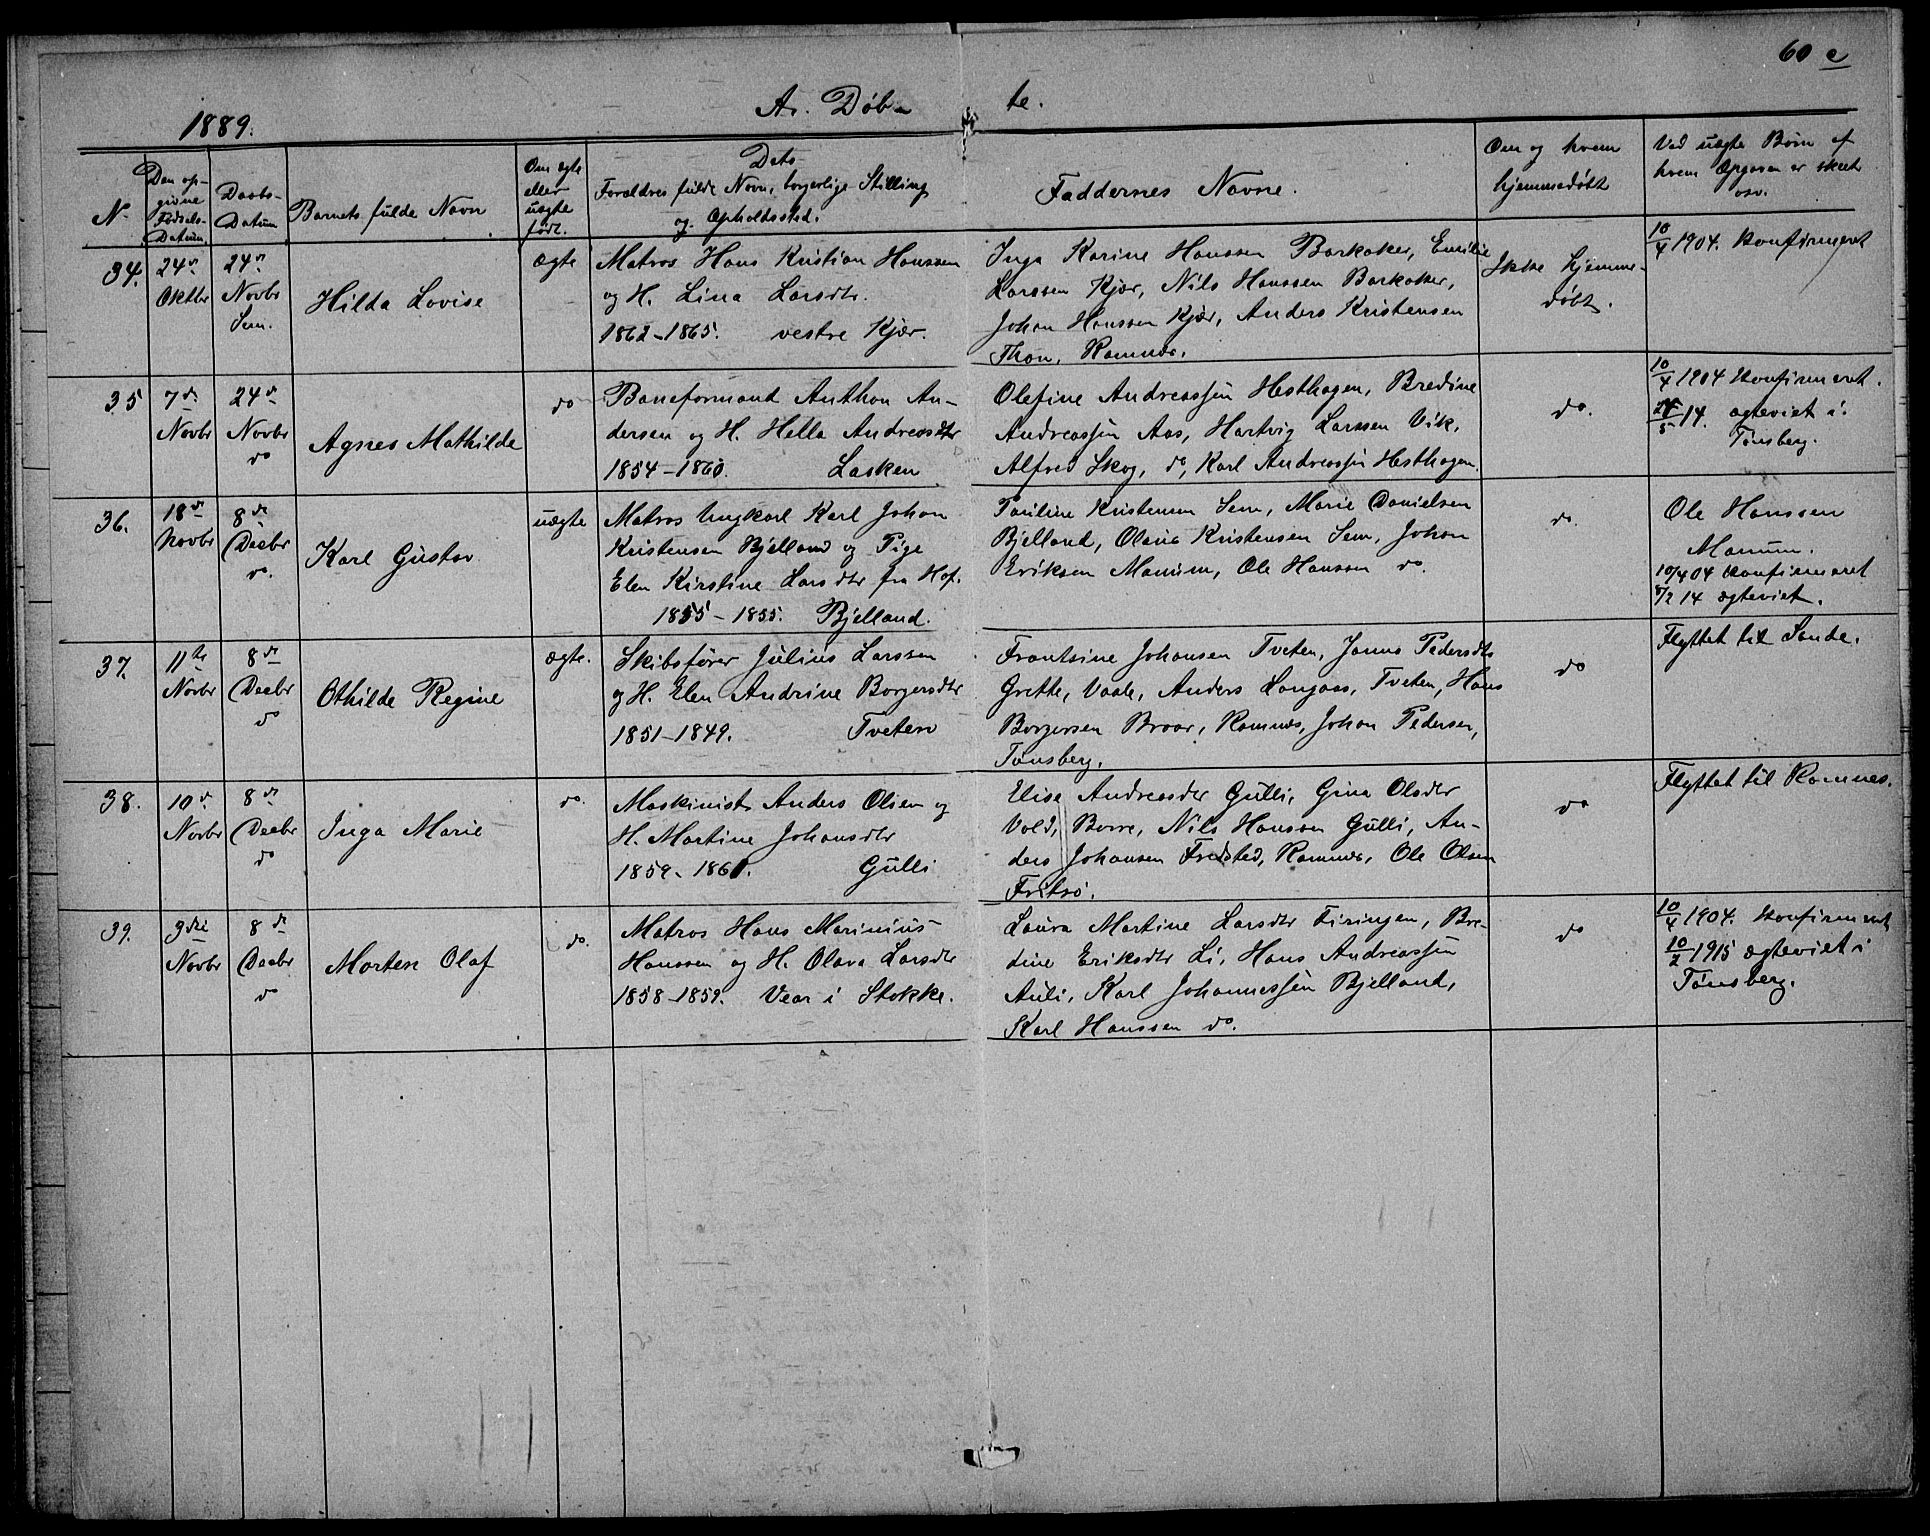 60 a
1889.
A. Døbte.
N.
Den opgivne Fødsels-Datum.
Daabs-Datum
Barnets fulde Navn
Om ægte eller uægte født.
Dets Forældres fulde Navn, borgerlige Stilling og Opholdssted.
Faddernes Navne.
Om og hvem hjemmedøbt
Ved uægte Børn af hvem Opgaven er skeet osv.
34.
24de Oktbr
24de Novbr Sem.
Hilda Lovise
ægte
Matros Hans Kristian Hanssen
og H. Lina Larsdtr.
1862-1865. vestre Kjær.
Inga Karine Hanssen Barkaker, Emilie
Larssen Kjær, Nils Hanssen Barkaker,
Johan Hanssen Kjær, Anders Kristensen
Thon, Ramnæs.
Ikke hjemme-
døbt.
10/4 1904. konfirmeret
35
7de Novbr
24de Novbr do
Agnes Mathilde
do
Baneformand Anthon An-
dersen og H. Hella Andreasdtr
1854-1860. Lasken
Olefine Andreassen Hesthagen, Bredine
Andreassen Aas, Hartvig Larssen Vik,
Alfred Skog, do, Karl Andreassen Hesthagen.
do.
10/4 1904 konfirmeret.
24/5 14. ægteviet i
Tønsberg.
36.
18de Novbr
8de Decbr do.
Karl Gustav
uægte
Matros Ungkarl Karl Johan
Kristensen Bjelland og Pige
Elen Kirstine Larsdtr fra Hof.
1855-1855. Bjelland.
Pauline Kristensen Sem, Marie Danielsen
Bjelland, Olava Kristensen Sem, Johan
Eriksen Manum, Ole Hanssen do.
do.
Ole Hanssen
Manum.
10/4 04 konfirmeret
8/2 14 ægteviet.
37.
11te Novbr
8de Decbr do
Othilde Regine
ægte.
Skibsfører Julius Larssen
og H. Elen Andrine Borgersdtr
1851-1849. Tveten
Frantsine Johansen Tveten, Janna Pedersdtr
Grette, Vaale, Anders Langaas, Tveten, Hans
Borgersen Braar, Ramnæs, Johan Pedersen,
Tønsberg.
do
Flyttet til Sande.
38.
10de Novbr
8de Decbr do
Inga Marie
do.
Maskinist Anders Olsen og
H. Martine Johansdtr
1859-1861. Gulli
Elise Andreasdtr Gulli, Gina Olsdtr
Vold, Borre, Nils Hanssen Gulli, An-
ders Johansen Fredsted, Ramnæs, Ole Olsen
Fritsø.
do
Flyttet til Ramnes.
39.
3die Novbr
8de Decbr do
Morten Olaf
do.
Matros Hans Marinius
Hanssen og H. Olava Larsdtr
1858-1859. Vear i Stokke.
Laura Martine Larsdtr Firingen, Bre-
dine Eriksdtr Li, Hans Andreassen
Auli, Karl Johannessen Bjelland,
Karl Hanssen do.
do
10/4 1904. konfirmeret
10/2 1915 ægteviet i
Tønsberg.